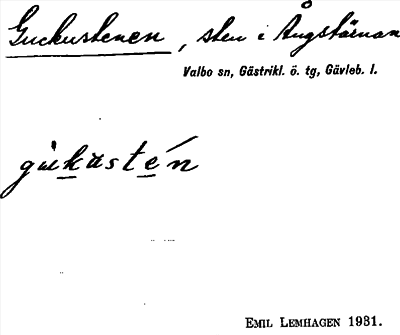 Guckustenen, sten i Ångstärnan
Valbo sn, Gästrikl. ö. tg, Gävleb. l.
gu̇kasté̱n
EMIL LEMHAGEN 1931.